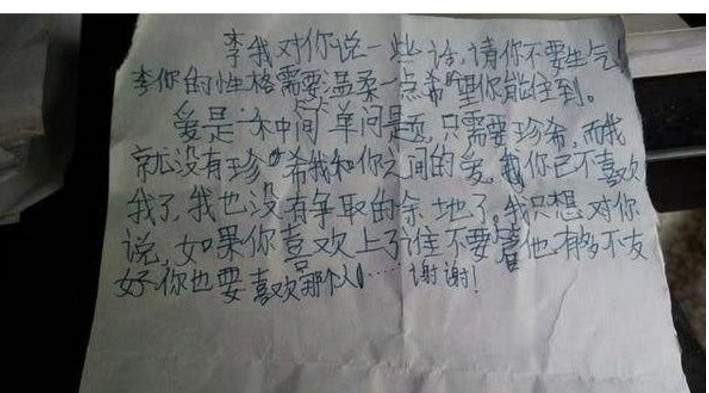 李我对你说一些话,请你不要生气!
李你的性格需要温柔一点希望你能住到。
爱是一木中间单问题,只需要珍希,而我
就没有珍希我和你之间的爱,你已不喜欢
我了,我也没有争取的余地了,我只想对你
说,如果你喜欢上了谁不要管他有多不友
好你也要喜欢那个人……谢谢!